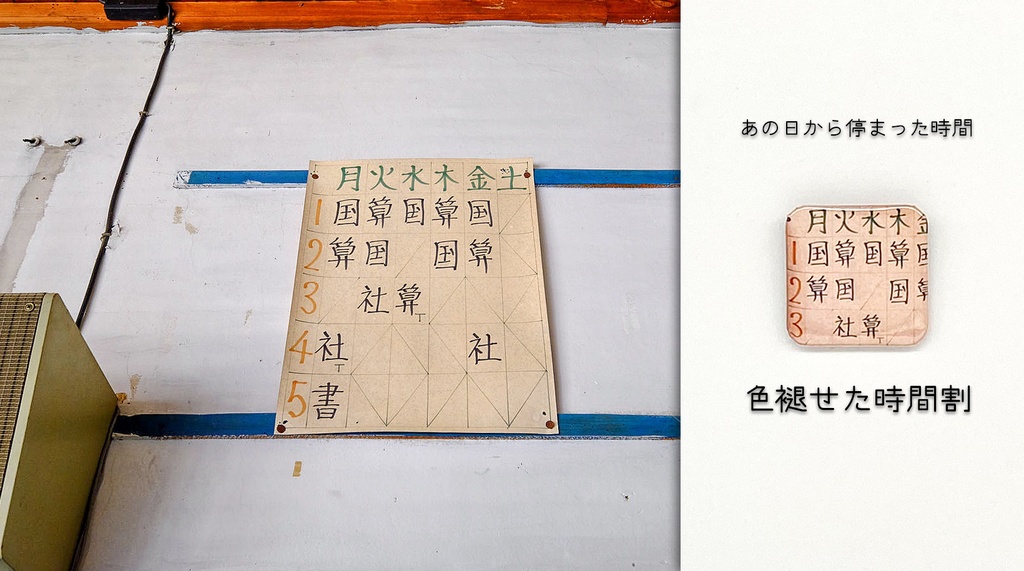 月火水木金土
1国算国算国
2算国 国算
3 社算T
4社T 社
5書
あの日から停まった時間
月火水木金
1国算国算国
2算国 国算
3 社算T
色褪せた時間割